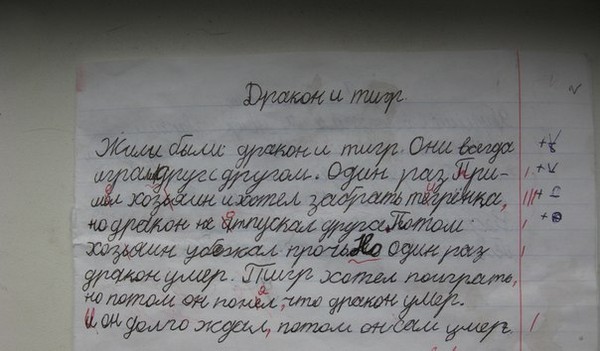 Дракон и тигр.
Жили были дракон и тигр. Они всегда
играли друг с другом. Один раз При-
шёл хозяин и хотел забрать тигрёнка,
но дракон не отпускал друга. Потом
хозьяин убежал прочь. Но Один раз
дракон умер. Тигр хотел поиграть,
но потом он понял, что дракон умер.
И он долго ждал, потом он сам умер.